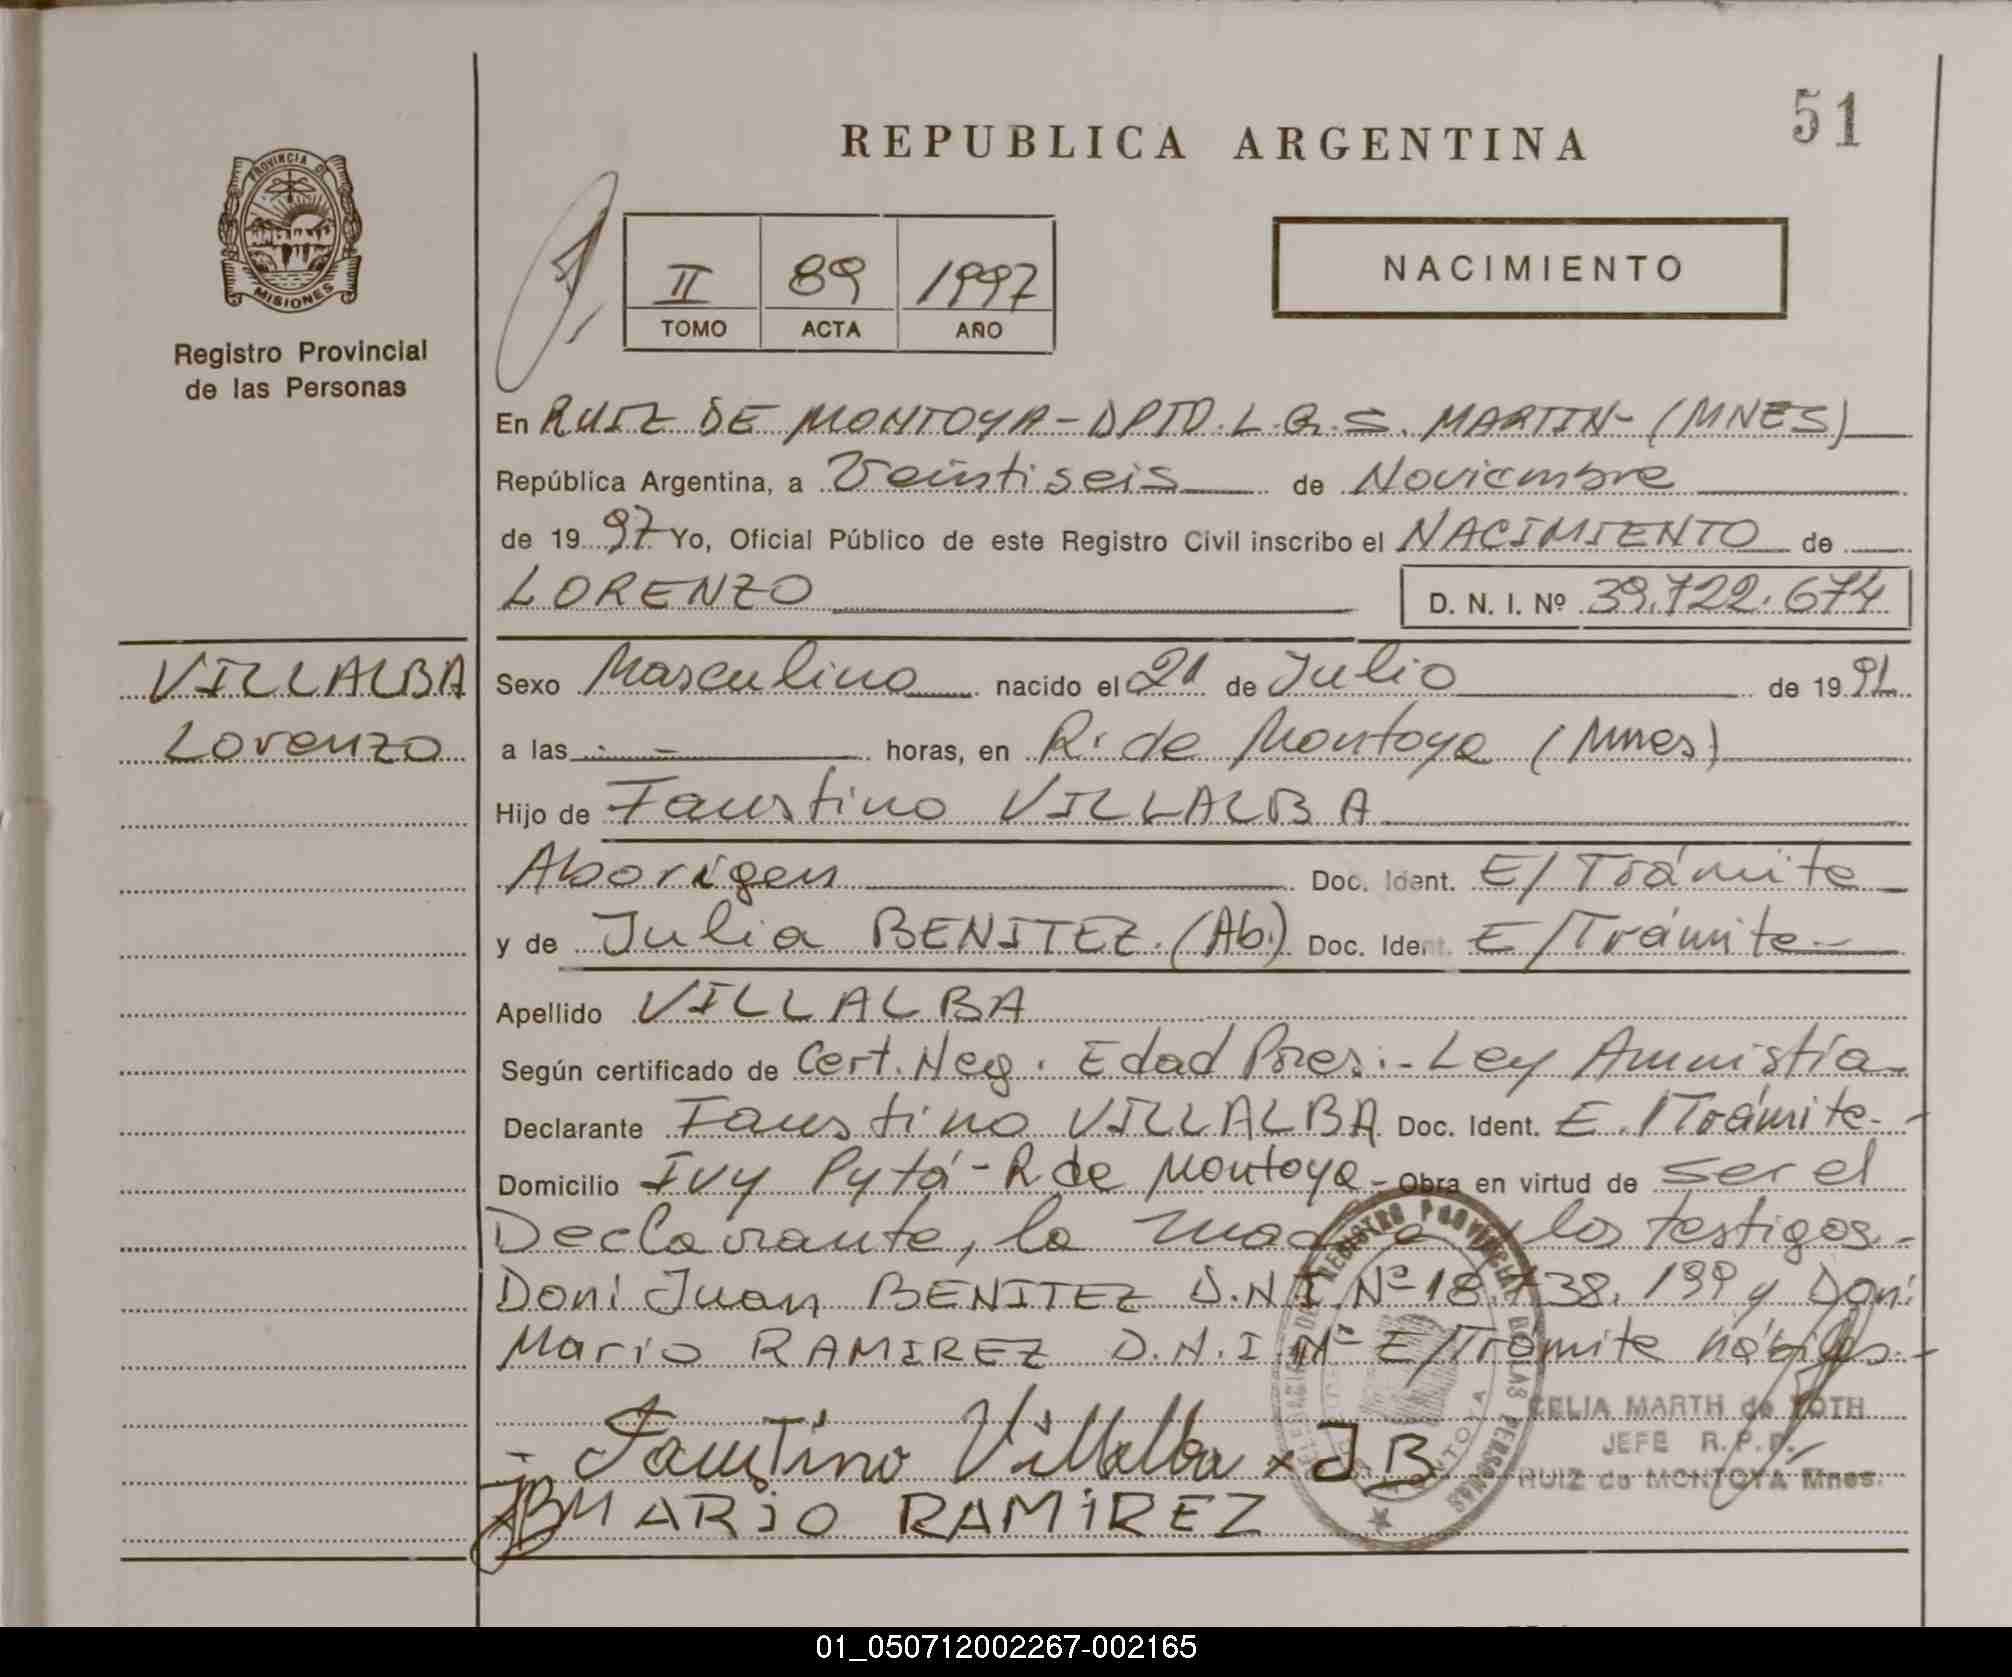 51
REPUBLICA ARGENTINA
PROVINCIA DE
MISIONES
Registro Provincial
de las Personas
II 89 1997
TOMO ACTA AÑO
NACIMIENTO
En RUIZ DE MONTOYA - DPTO. L. G. S. MARTIN - (MNES)
República Argentina, a Veintiseis de Noviembre
de 1997 Yo, Oficial Público de este Registro Civil inscribo el NACIMIENTO de
LORENZO D. N. I. Nº 39.722.674
VILLALBA
Lorenzo
Sexo Masculino nacido el 21 de Julio de 1991
a las horas, en R. de Montoya (Mnes)
Hijo de Faustino VILLALBA
Aborigen Doc. Ident. E/Trámite
y de Julia BENITEZ. (Ab.) Doc. Ident. E/Trámite
Apellido VILLALBA
Según certificado de Cert. Neg. Edad Pres.- Ley Amnistía
Declarante Faustino VILLALBA Doc. Ident. E./Trámite.-
Domicilio Ivy Pytá - R de Montoya - Obra en virtud de ser el
Declarante, la madre y los testigos.-
Doni Juan BENITEZ D.N.I. Nº 18.738.199 y Don:
Mario RAMIREZ D.N.I Nº E/Trámite hábiles.-
CELIA MARTH de TOTH
JEFE R.P.P.
RUIZ de MONTOYA Mnes.
- Faustino Villalba x J B
JB MARiO RAMiREZ
01_050712002267-002165